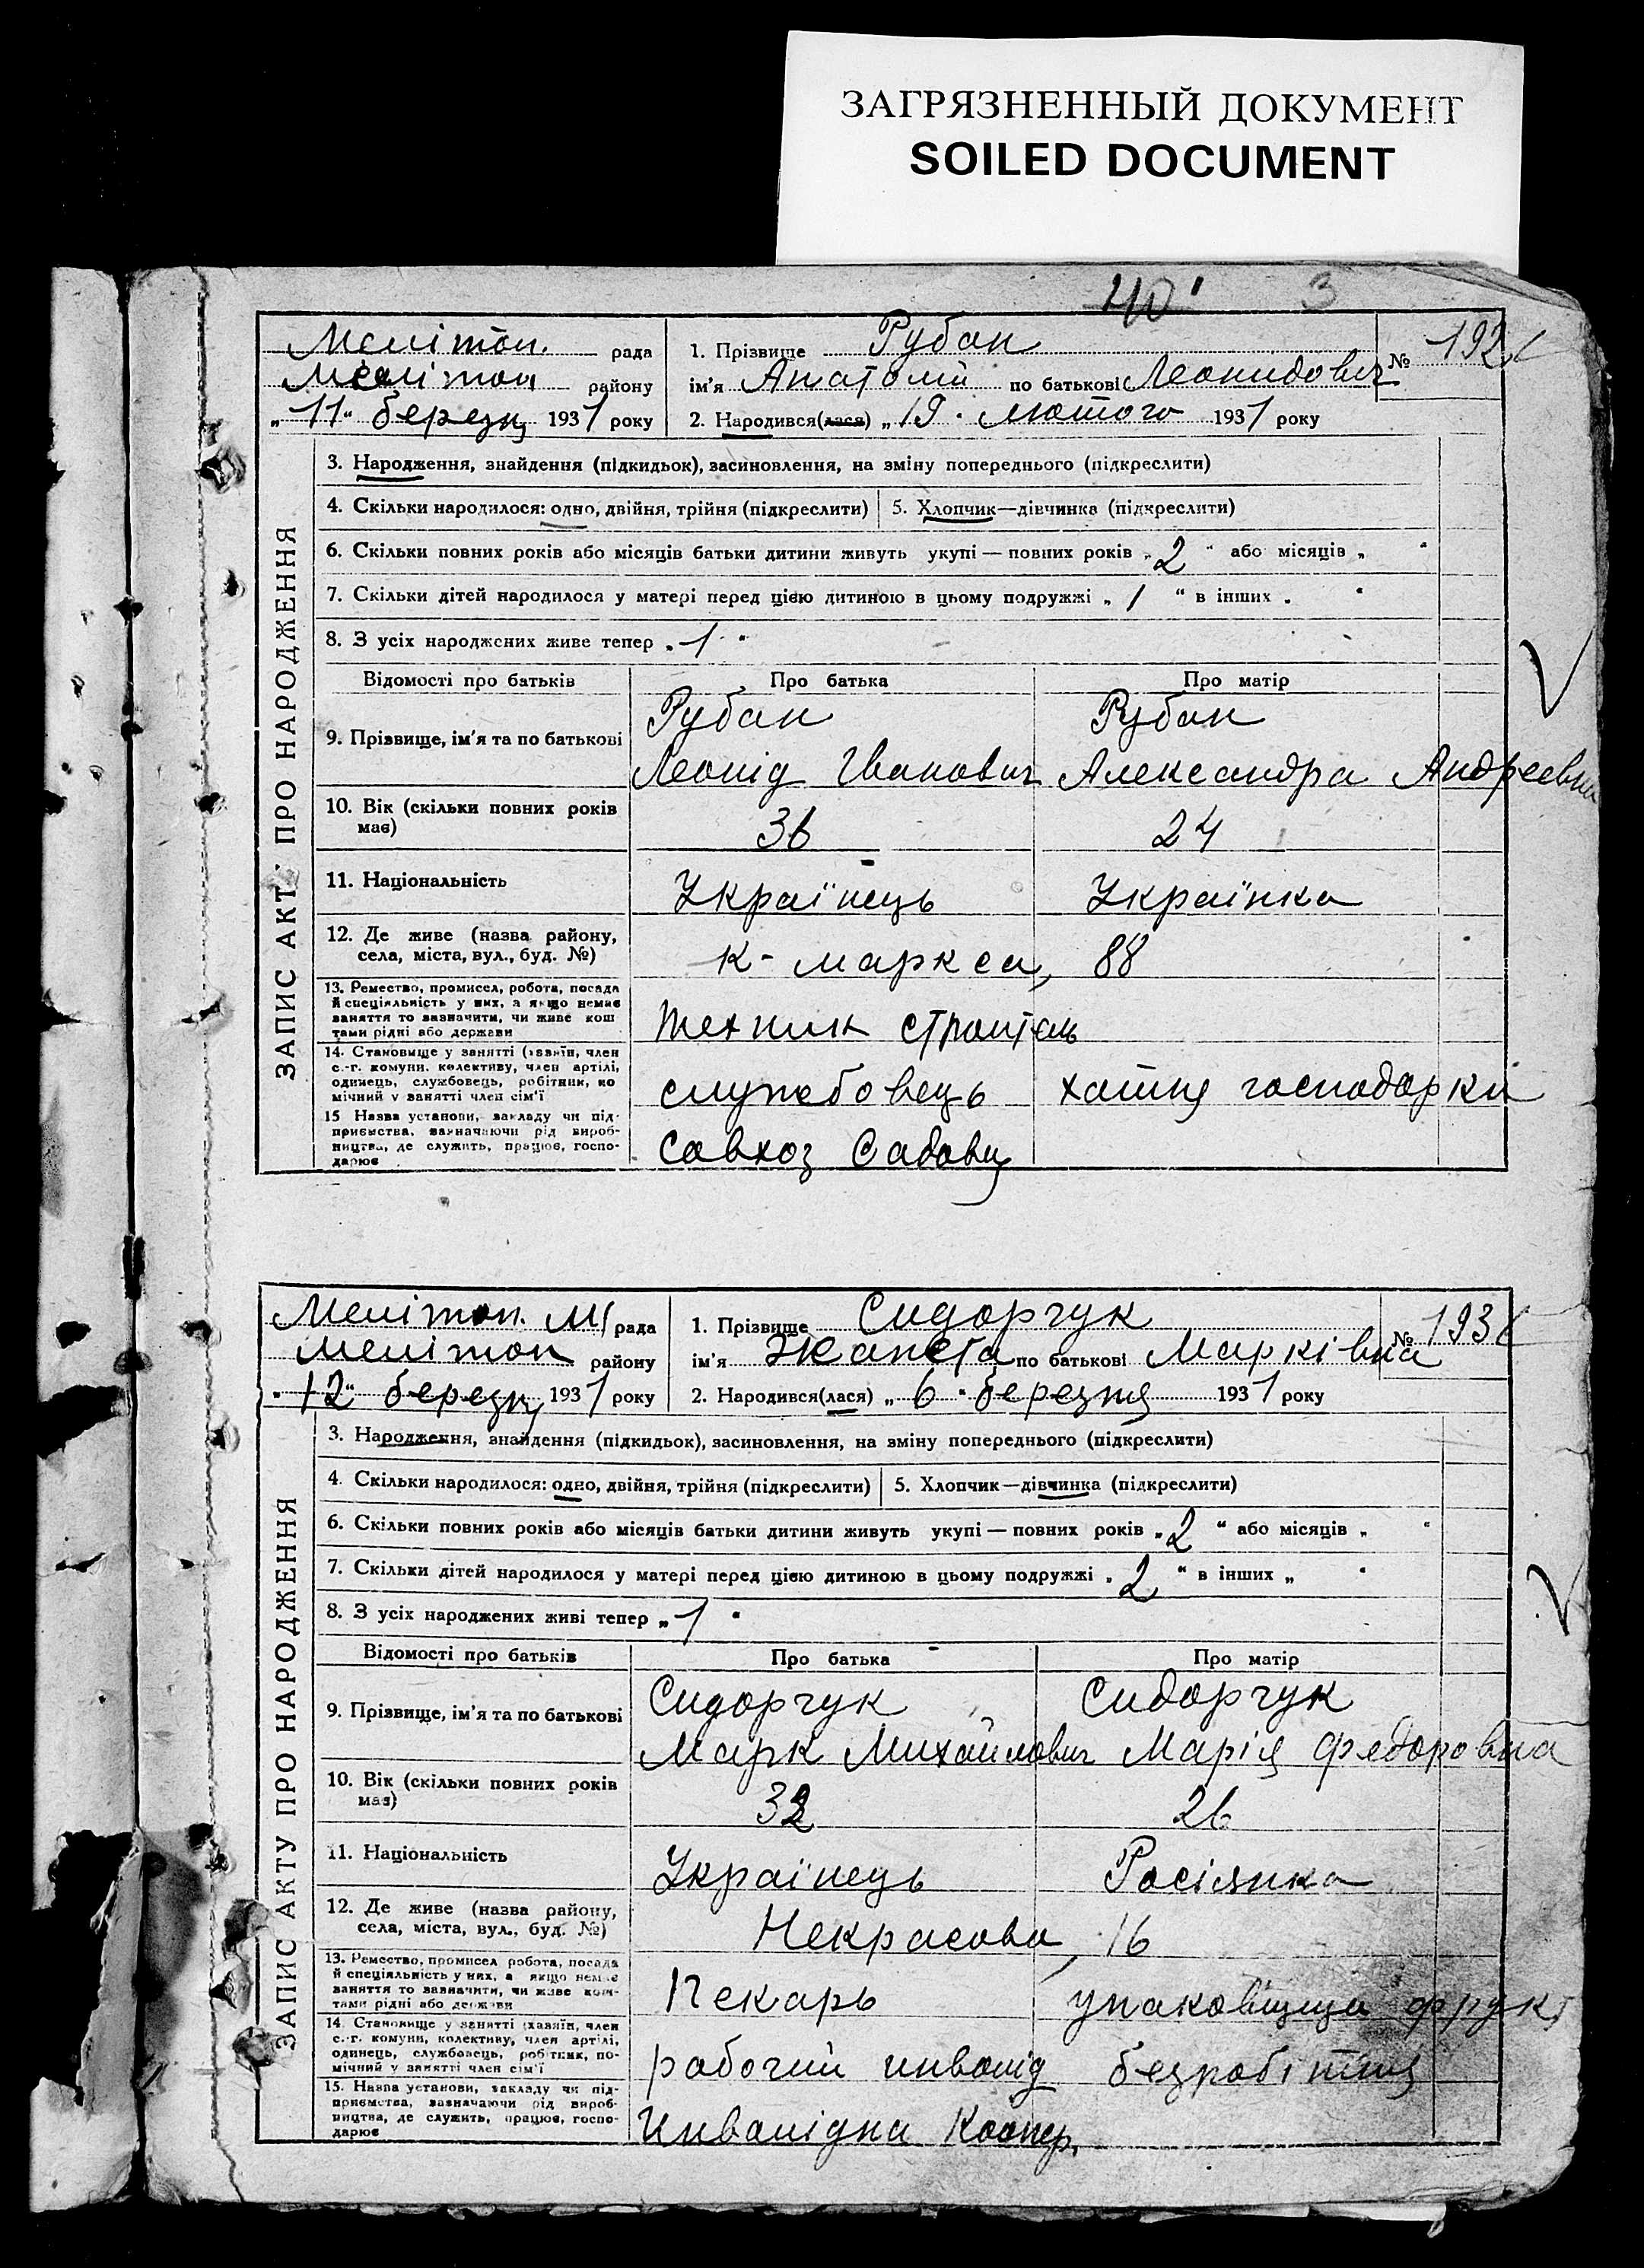 ЗАГРЯЗНЕННЫЙ ДОКУМЕНТ
SOILED DOCUMENT
40 3
Мелітоп. рада
Мелітоп району
„11" березн 1931 року
1. Прізвище Рубан
ім'я Анатолій по батькові Леонидович
№ 192
2. Народився(лася) „19" лютого 1931 року
ЗАПИС АКТ ПРО НАРОДЖЕННЯ
3. Народження, знайдення (підкидьок), засиновлення, на зміну попереднього (підкреслити)
4. Скільки народилося: одно, двійня, трійня (підкреслити) 5. Хлопчик—дівчинка (підкреслити)
6. Скільки повних років або місяців батьки дитини живуть укупі — повних років „2" або місяців „ "
7. Скільки дітей народилося у матері перед цією дитиною в цьому подружжі „1" в інших „ "
8. З усіх народжених живе тепер „1"
Відомості про батьків Про батька Про матір
9. Прізвище, ім'я та по батькові Рубан Рубан
Леонід Іванович Александра Андреевна
10. Вік (скільки повних років має) 36 24
11. Національність Українець Українка
12. Де живе (назва району, села, міста, вул., буд. №) К-маркса, 88
13. Ремество, промисел, робота, посада
й спеціяльність у них, а якщо немає
заняття то зазначити, чи живе кош
тами рідні або держави
техник строитель
14. Становище у занятті (хазяїн, член
с.-г. комуни, колективу, член артілі,
одинець, службовець, робітник, по
мічний у занятті член сім'ї
службовець хатня господарка
15 Назва установи, закладу чи під-
приємства, зазначаючи рід вироб-
ництва, де служить, працює, госпо-
дарює
Совхоз Садовц
Мелітоп. М/ рада
Мелітоп району
„12" березн 1931 року
1. Прізвище Сидорчук
ім'я Жанета по батькові Марківна
№ 193
2. Народився(лася) „6" березня 1931 року
ЗАПИС АКТУ ПРО НАРОДЖЕННЯ
3. Народження, знайдення (підкидьок), засиновлення, на зміну попереднього (підкреслити)
4. Скільки народилося: одно, двійня, трійня (підкреслити) 5. Хлопчик—дівчинка (підкреслити)
6. Скільки повних років або місяців батьки дитини живуть укупі — повних років „2" або місяців „ "
7. Скільки дітей народилося у матері перед цією дитиною в цьому подружжі „2" в інших „ "
8. З усіх народжених живі тепер „1"
Відомості про батьків Про батька Про матір
9. Прізвище, ім'я та по батькові Сидорчук Сидорчук
Марк Михайлович Марія Федоровна
10. Вік (скільки повних років має) 32 26
11. Національність Українець Росіянка
12. Де живе (назва району, села, міста, вул., буд. №) Некрасова, 16
13. Ремество, промисел робота, посада
й спеціяльність у них, а якщо немає
заняття то зазначити, чи живе кош-
тами рідні або держави
Пекарь упаковщица фрукт
14. Становище у занятті (хазяїн, член
с.-г. комуни, колективу, член артілі,
одинець, службовець, робітник, по-
мічний у занятті член сім'ї
рабочий инвалід безробітня
15. Назва установи, закладу чи під-
приємства, зазначаючи рід вироб-
ництва, де служить, працює, госпо-
дарює
Инвалідна Коопер.